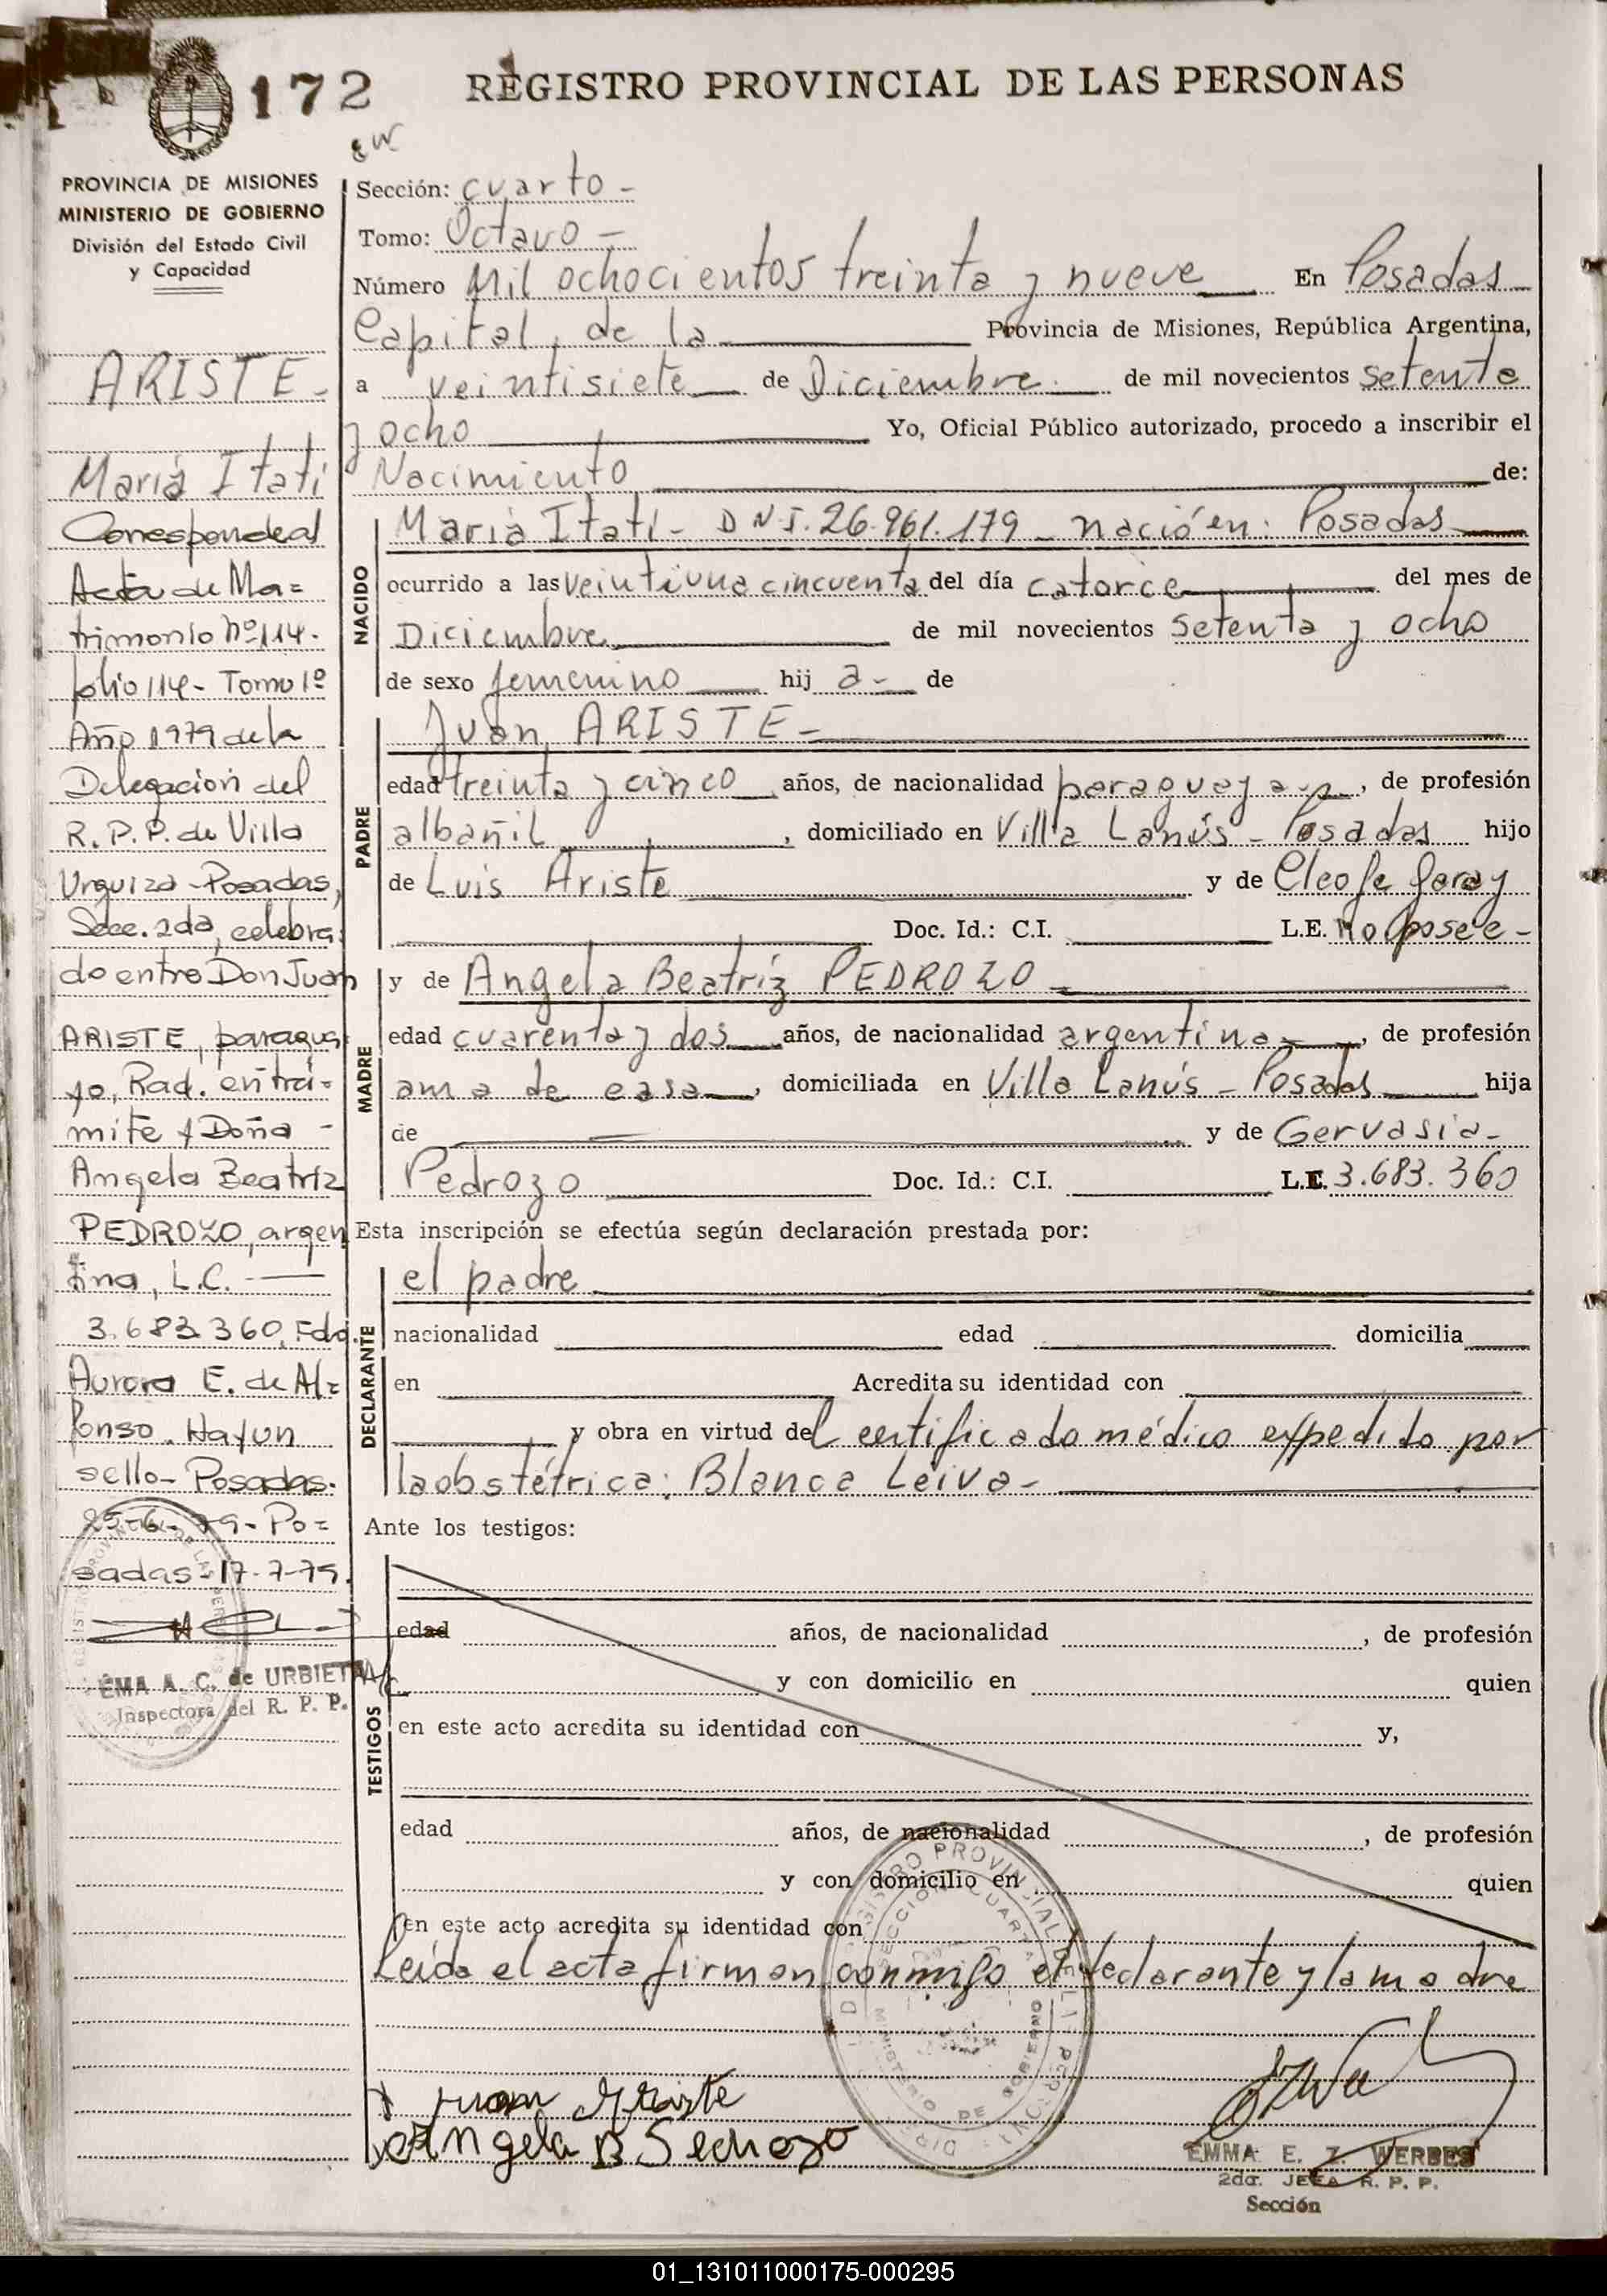 172
REGISTRO PROVINCIAL DE LAS PERSONAS
PROVINCIA DE MISIONES
MINISTERIO DE GOBIERNO
División del Estado Civil
y Capacidad
ARISTE-
María Itatí
Corresponde al
Acta de Ma=
trimonio Nº 114.
folio 114- Tomo 1º
Año 1979 de la
Delegación del
R.P.P. de Villa
Urquiza-Posadas,
Secc. 2da, celebra
do entre Don Juan
ARISTE, paragua
yo, Rad. en trá=
mite y Doña -
Angela Beatriz
PEDROZO, argen
tina, L.C.
3.683.360, Fdo.
Aurora E. de Al=
fonso. Hay un
sello- Posadas.
25-6-79- Po=
sadas- 17-7-79.
EMA A. C. de URBIETA
Inspectora del R. P. P.
Sección: cuarto-
Tomo: Octavo-
Número Mil ochocientos treinta y nueve En Posadas
Capital, de la Provincia de Misiones, República Argentina,
a veintisiete de Diciembre. de mil novecientos setenta
y ocho Yo, Oficial Público autorizado, procedo a inscribir el
Nacimiento de:
NACIDO
María Itatí- D N I. 26.961.179 - nació en: Posadas
ocurrido a las veintiuna cincuenta del día catorce del mes de
Diciembre de mil novecientos setenta y ocho
de sexo femenino hij a- de
PADRE
Juan ARISTE-
edad treinta y cinco años, de nacionalidad paraguaya, de profesión
albañil, domiciliado en Villa Lanús - Posadas hijo
de Luis Ariste y de Cleofe Garay
Doc. Id.: C.I. L.E. No posee-
MADRE
y de Angela Beatriz PEDROZO-
edad cuarenta y dos años, de nacionalidad argentina, de profesión
ama de casa, domiciliada en Villa Lanús - Posadas hija
de y de Gervasia-
Pedrozo Doc. Id.: C.I. L.E. 3.683.360
Esta inscripción se efectúa según declaración prestada por:
DECLARANTE
el padre
nacionalidad edad domicilia
en Acredita su identidad con
y obra en virtud del certificado médico expedido por
la obstétrica: Blanca Leiva-
Ante los testigos:
TESTIGOS
edad años, de nacionalidad , de profesión
y con domicilio en quien
en este acto acredita su identidad con y,
edad años, de nacionalidad , de profesión
y con domicilio en quien
en este acto acredita su identidad con
Leída el acta firman conmigo el declarante y la madre
Juan Ariste
Angela B Pedrozo
EMMA E. Z. WERBES
2da. JEFA R. P. P.
Sección
01_131011000175-000295